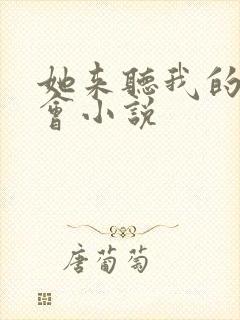 她来聽我的
會小説
唐葡萄